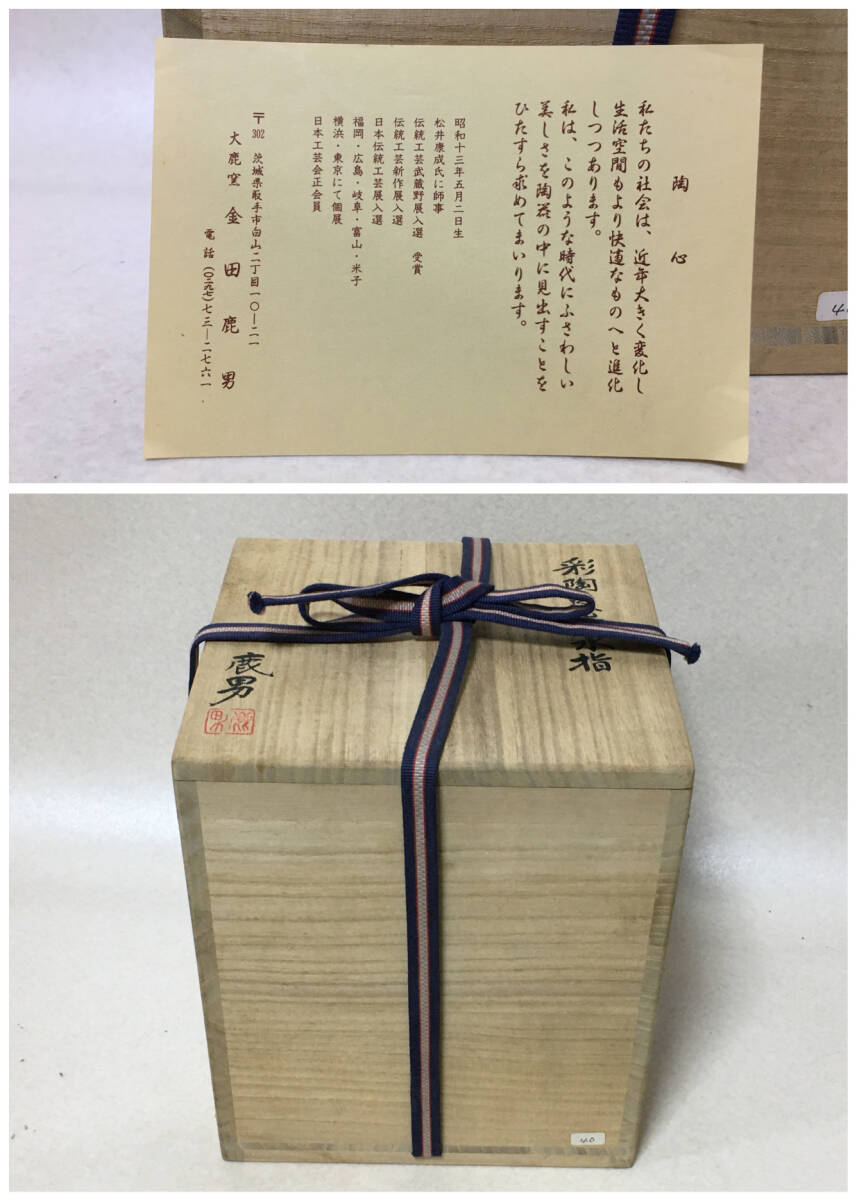 陶心
私たちの社会は、近年大きく変化し
生活空間もより快適なものへと進化
しつつあります。
私は、このような時代にふさわしい
美しさを陶器の中に見出すことを
ひたすら求めてまいります。
昭和十三年五月二日生
松井康成氏に師事
伝統工芸武蔵野展入選 受賞
伝統工芸新作展入選
日本伝統工芸展入選
福岡・広島・岐阜・富山・米子
横浜・東京にて個展
日本工芸会正会員
〒302 茨城県取手市白山二丁目一〇ー二一
大鹿窯 金田鹿男
電話(〇二九七)七三ー二七六一
彩陶 水指
鹿男
4.0